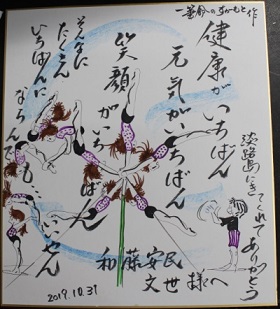 一筆絵のすがもと作
健康がいちばん
元気がいちばん
笑顔がいちばん
そんなに
たくさん
いちばんに
ならんで
も、いいやん
淡路島にきてくれてありがとう
和藤安民
文世様へ
2019.10.31